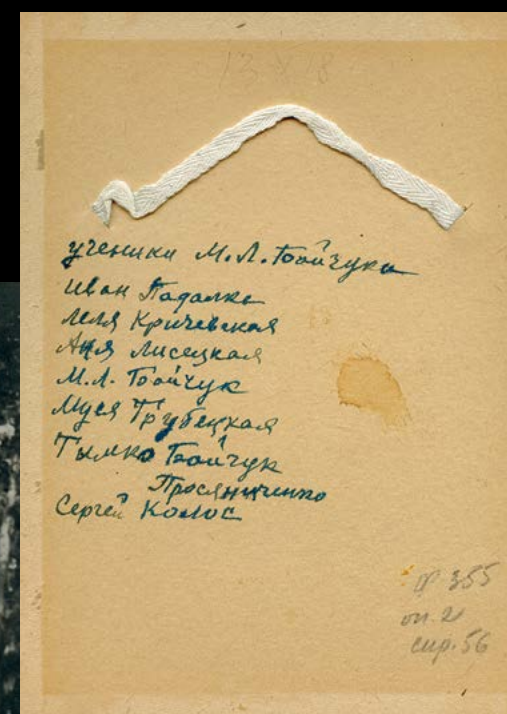 13 х 18
ученики М.Л. Бойчука
Иван Падалка
Леля Кричевская
Аня Лисецкая
М.Л. Бойчук
Муся Трубецкая
Тымко Бойчук
Просянниченко
Сергей Колос
ф 355
оп. 2
спр. 56